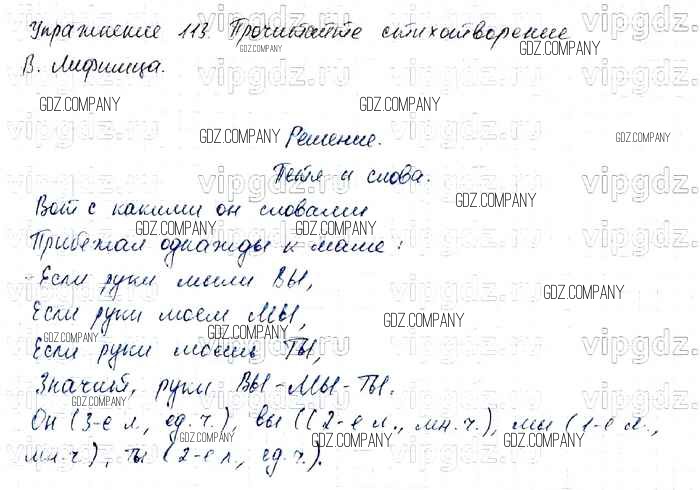 Упражнение 113. Прочитайте стихотворение
В. Лифшица.
Решение.
Петя и слова.
Вот с какими он словами
Прибежал однажды к маме:
- Если руки мыли ВЫ,
Если руки моем МЫ,
Если руки моешь ТЫ,
Значит, руки ВЫ-МЫ-ТЫ.
Он (3-е л., ед.ч.), вы ((2-е л., мн.ч.), мы (1-е л.,
мн.ч.), ты (2-е л., ед.ч.).